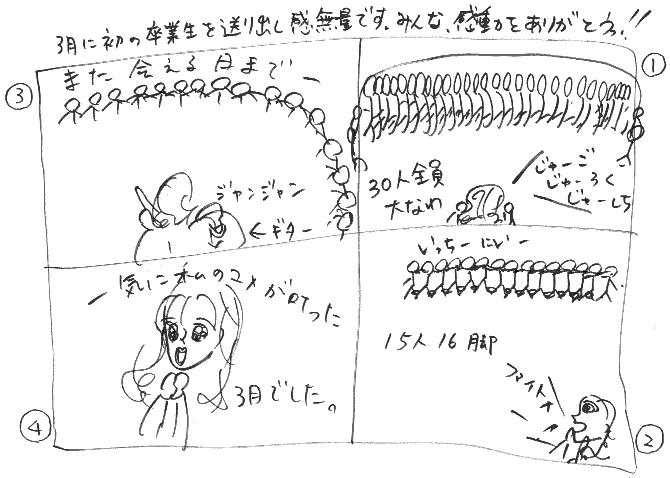 3月に初の卒業生を送り出し感無量です。みんな、感動をありがとう!!
①
30人全員
大なわ
じゃーご
じゃーろく
じゃーしち
②
いっちーにいー
15人16脚
ファイト
③
また会える日まで
ジャンジャン
←ギター
④
一気に私のユメが叶った
3月でした。